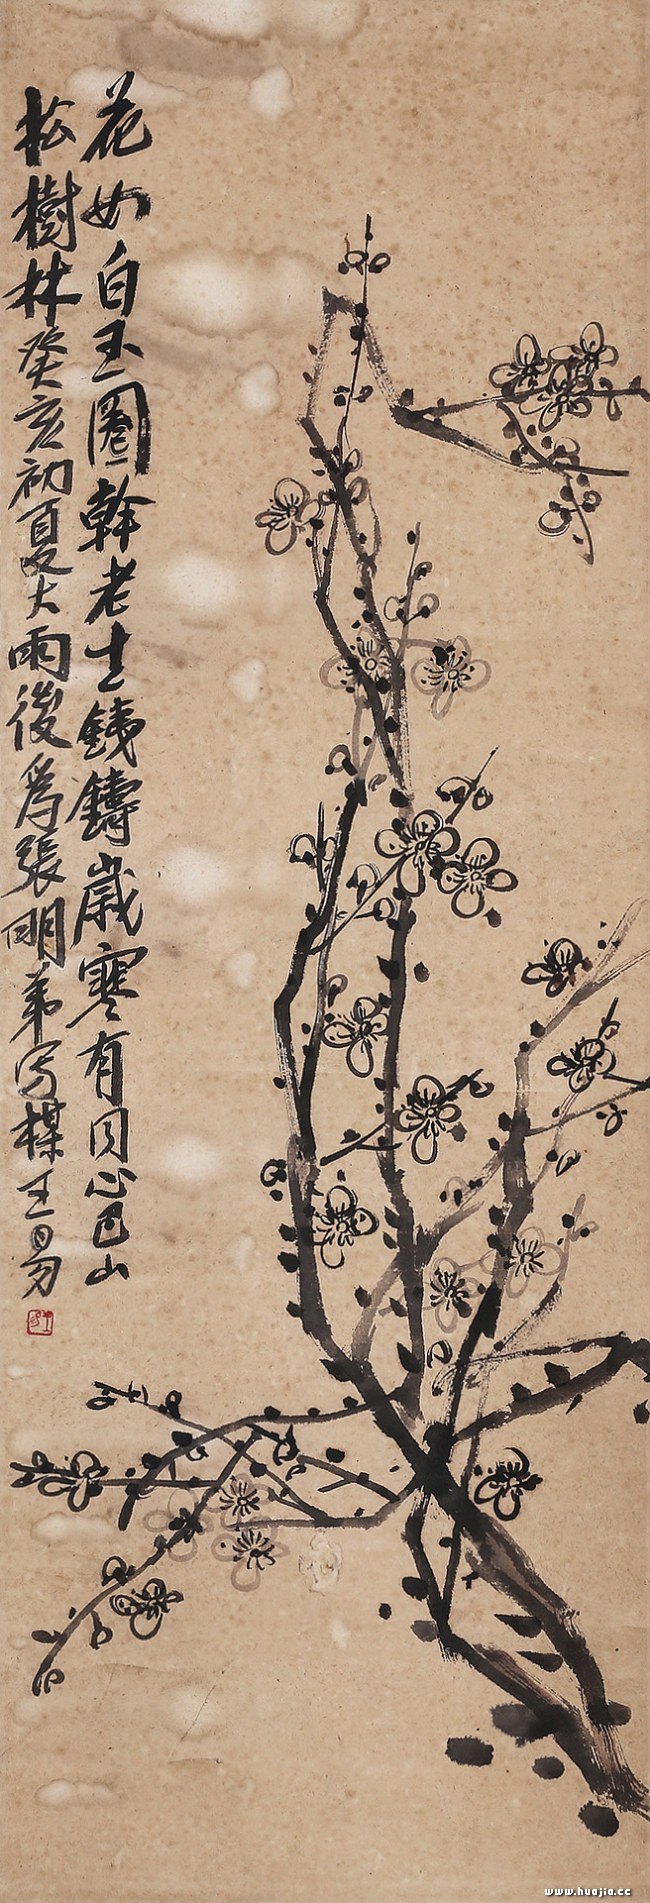 花如白玉圈幹老生鐵鑄歲寒有同心巴山
松樹林癸亥初夏大雨後為張明弟寫楳王易
www.huajia.cc